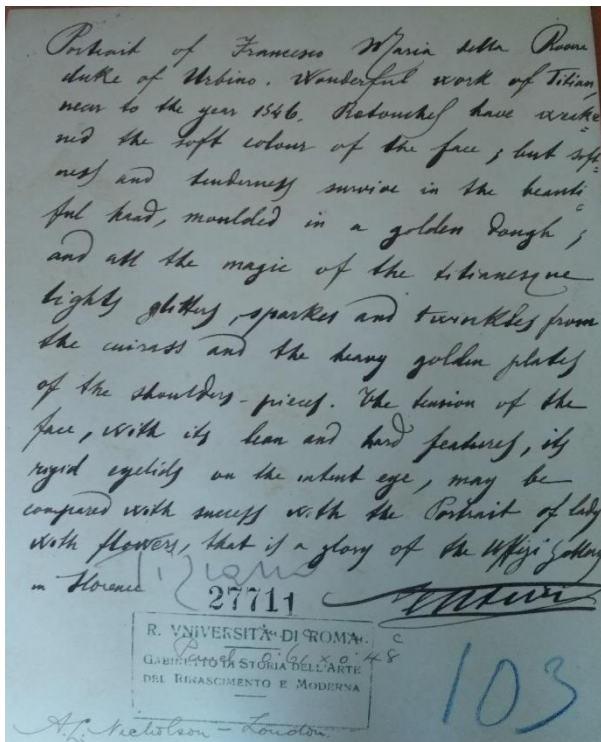 Portrait of Francesco Maria della Rovere
duke of Urbino. Wonderful work of Titian,
near to the year 1546. Retouches have weake=
ned the soft colour of the face; but soft=
ness and tenderness survive in the beauti=
ful hand, moulded in a golden dough;
and all the magic of the titianesque
lights glitters, sparkes and twinkles from
the cuirass and the heavy golden plates
of the shoulders-pieces. The tension of the
face, with its lean and hard features, its
rigid eyelids on the intent eye, may be
compared with success with the Portrait of lady
with flowers, that is a glory of the Uffizi Gallery
in Florence
Tiziano
27711
R. VNIVERSITÀ DI ROMA
0.61 x 0.48
GABINETTO DI STORIA DELL'ARTE
DEL RINASCIMENTO E MODERNA
103
A. L. Nicholson - London